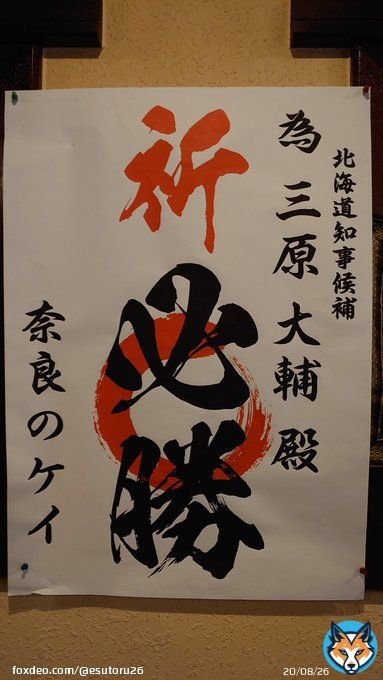 北海道知事候補
為 三原大輔 殿
祈
必勝
奈良のケイ
foxdeo.com/@esutoru26
20/08/26